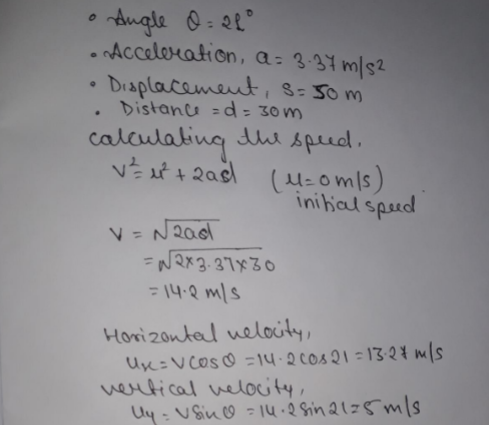 • Angle θ = 21°
• Acceleration, a = 3.37 m/s2
• Displacement, s = 50 m
• Distance = d = 30m
calculating the speed.
v² = u² + 2ad (u=0 m/s)
initial speed
v = √2ad
= √2×3.37×30
= 14.2 m/s
Horizontal velocity,
ux = vcosθ = 14.2cos21 = 13.27 m/s
vertical velocity,
uy = vsinθ = 14.2sin21 = 5 m/s